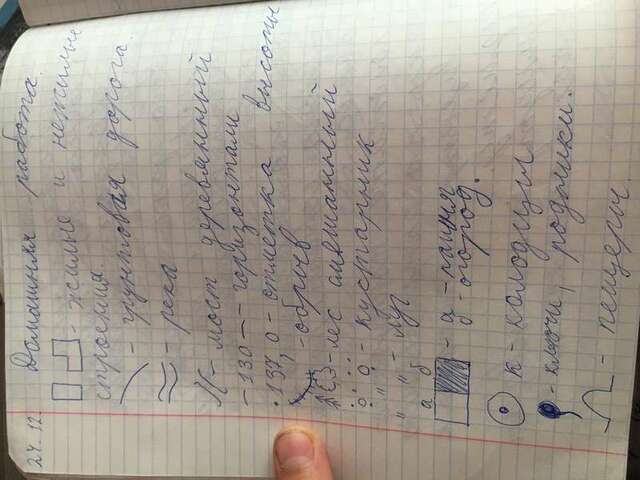 24.12 Домашняя работа.
- жилые и нежилые
строения.
- грунтовая дорога.
- река
- мост деревянный
-130- - горизонтали
. 137,0 - отметка высоты
- обрыв
- лес смешанный
- кустарник
" " " - луг
а б - а - пашня
б - огород.
к - колодцы
- ключи, родники.
- пещеры.